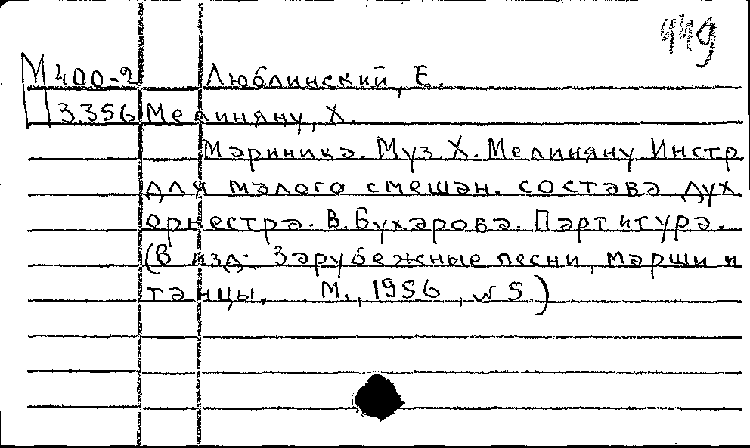 449
М 400-2 Люблинский, Е.
П 3.356 Мелиняну, Х.
Мариника. Муз. Х. Мелиняну. Инстр.
для малого смешан. состава дух.
оркестра. В. Бухарова. Партитура.
(В изд: Зарубежные песни, марши и
танцы. М., 1956, № 5)